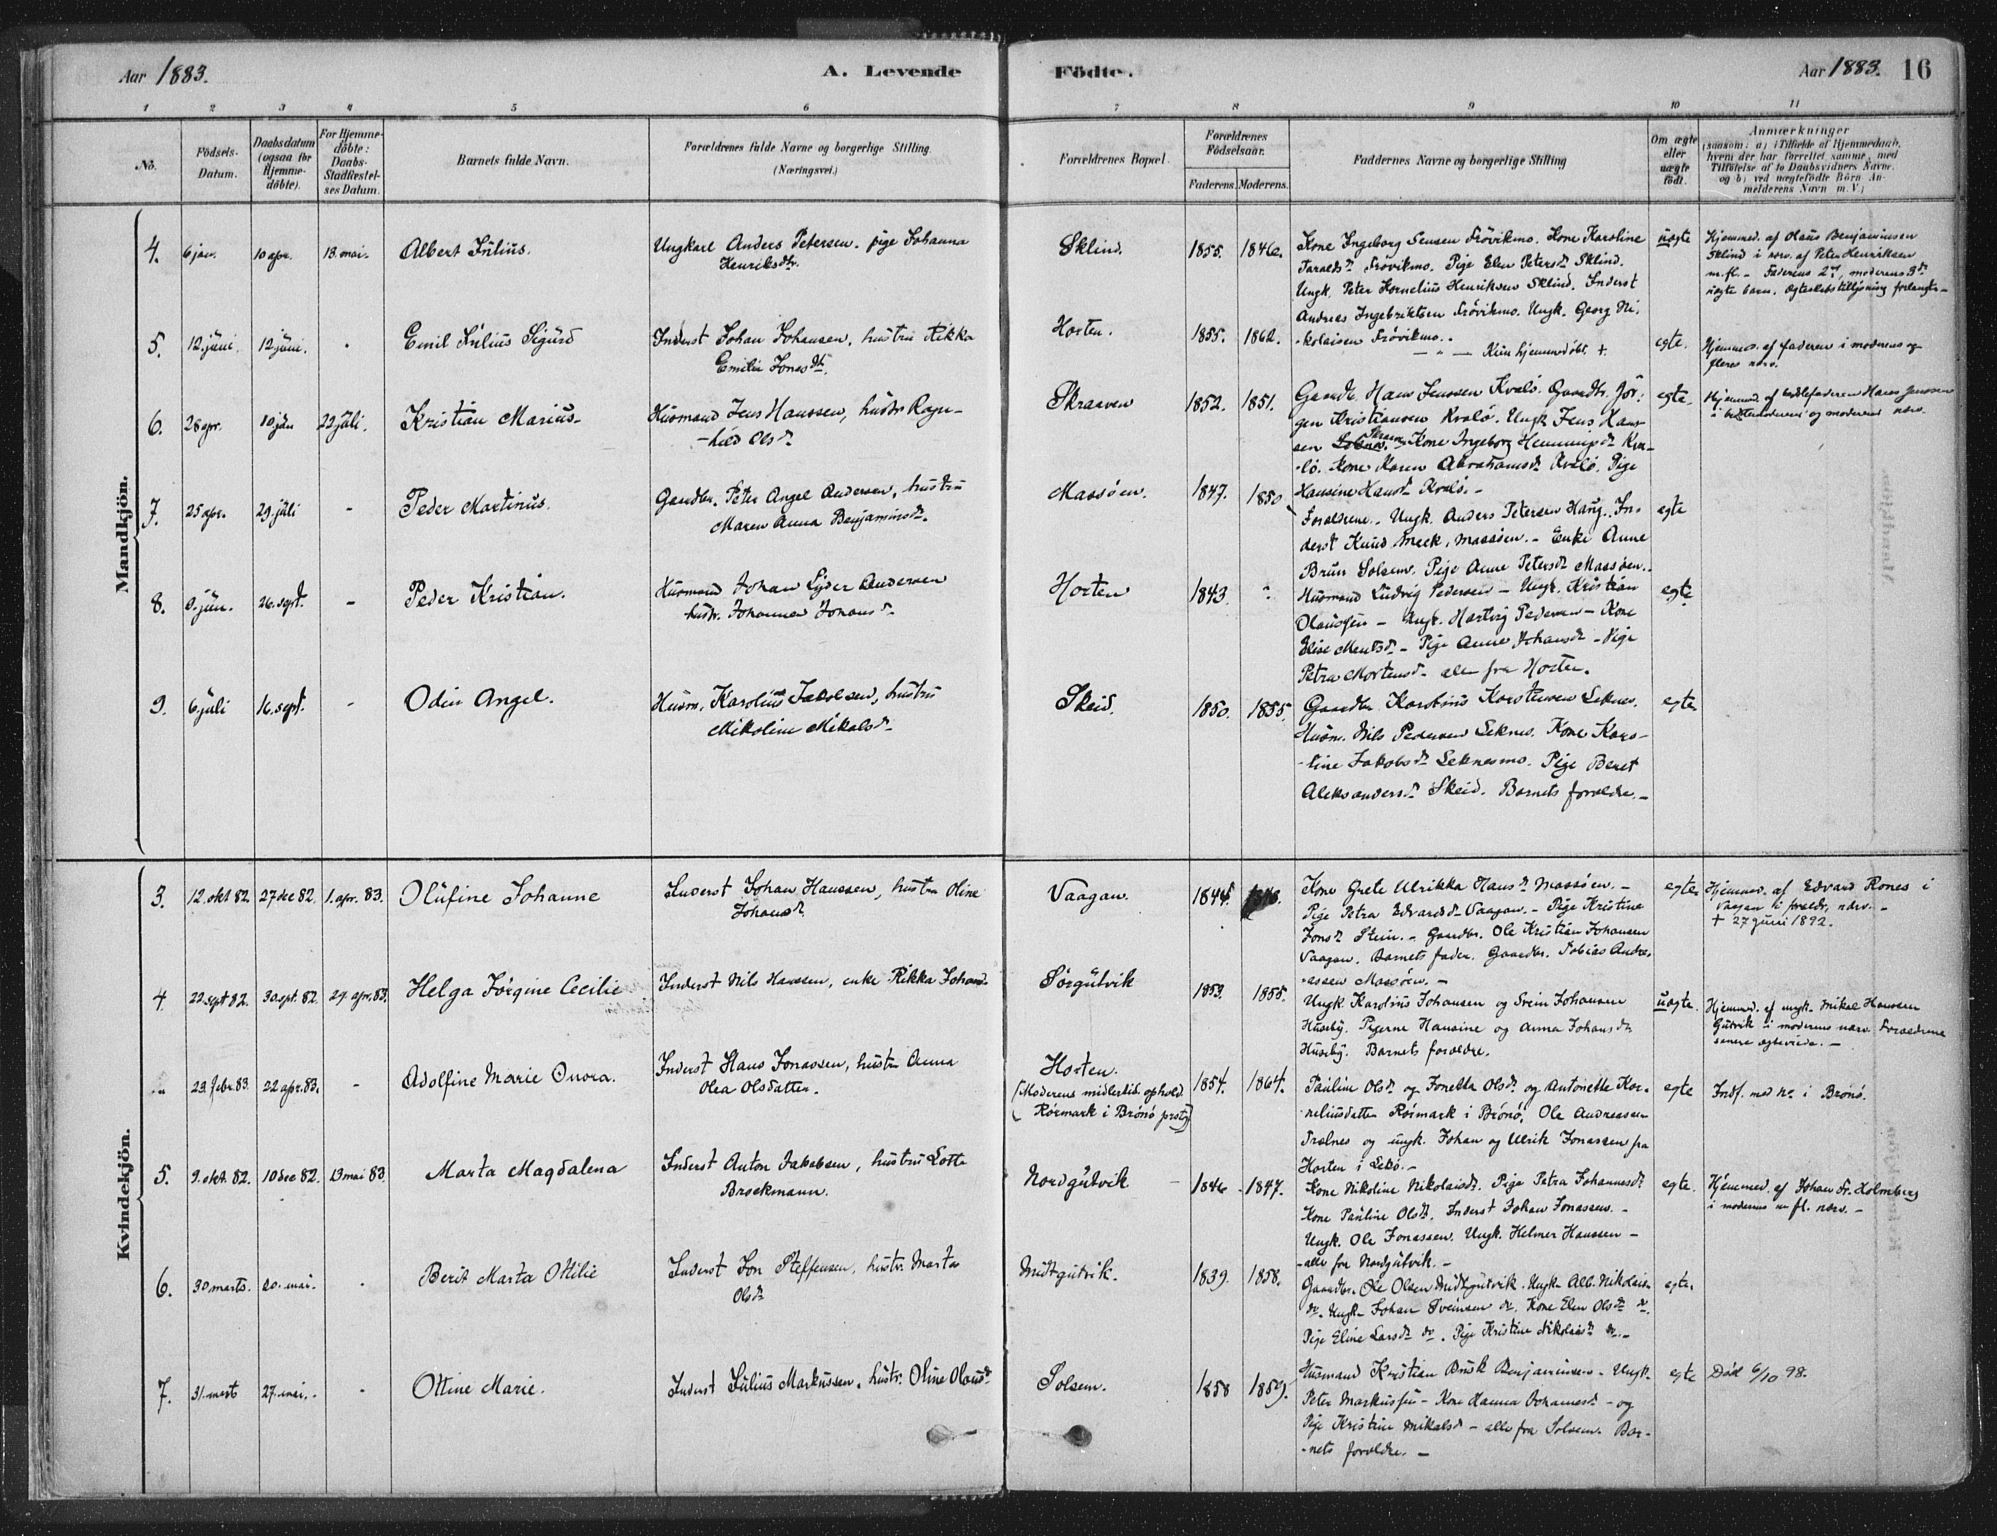 Aar 1883.
A. Levende
Födte.
Aar 1883.
16
1 2 3 4 5 6 7 8 9 10 11
No.
Födsels-
Datum.
Daabsdatum
(ogsaa for
Hjemme-
döbte).
For Hjemme-
döbte:
Daabs-
Stadfæstel-
ses Datum.
Barnets fulde Navn.
Forældrenes fulde Navne og borgerlige Stilling
(Næringsvei.)
Forældrenes Bopæl.
Forældrenes
Födselsaar.
Faderens.
Moderens.
Faddernes Navne og borgerlige Stilling
Om ægte
eller
uægte
født.
Anmærkninger
(saasom: a) i Tilfælde af Hjemmedaab,
hvem der har forrettet samme, med
Tilföielse af to Daabsvidners Navne.
og b) ved uægtefödte Börn An-
melderens Navn m. V.)
Mandkjön.
4. 6 jan. 10 apr. 13. mai. Albert Julius.
Ungkarl Anders Petersen. pige Johanna
Henriksdtr.
Sklind. 1855. 1846.
Kone Ingeborg Jensen Frövikmo. Kone Karoline
Taraldsd Frövikmo. Pige Elen Petersd Sklind.
Ungk. Peter Kornelius Henriksen Sklind. Inderst
Andreas Ingebriktsen Frövikmo. Ungk. Georg Ni-
kolaisen Frövikmo.
uægte
Hjemmed. af Olaus Benjaminsen
Sklind i nærv. af Peter Henriksen
m. fl. - Faderens 2det, moderens 3die
uægte barn. Ægteskabstillysning forlangt. -
5. 12. juni. 12 juni. - Emil Julius Sigurd
Inderst Johan Johansen, hustru Rikka
Emilie Jonsdtr.
Horten. 1855. 1862.
- " - Kun hjemmedöbt. +.
egte.
Hjemmed. af faderen i moderens og
fleres nærv.
6. 28 apr. 10 jun 22 juli. Kristian Marius-
Husmand Jens Hanssen, hustr Ragn-
-hild Olsd
Skraaven 1852. 1851.
Gaardbr. Hans Jenssen Kvalö. Gaardbr. Jör-
gen Kristiansen Kvalö. Ungk Jens Hans-
sen Kone Ingeborg Hemmingsd Kva-
-lö. Kone Karen Abrahamsd. Kvalö. Pige
Hansine Hansd Kvalö. -
egte.
Hjemmed af bedstefaderen Hans Jenssen
i bedstemoderens og moderens nærv.
7. 25 apr. 29 juli - Peder Martinus.
Gaardbr. Peter Angel Andersen, hustru
Maren Anna Benjaminsd.
Massöen. 1847. 1850
Forældrene. Ungk. Anders Petersen Haug. In-
derst Knud Meek, Massöen. - Enke Anne
Brun Solsem. Pige Anne Petersd. Massöen.
egte
8. 9. jun. 26. sept. - Peder Kristian.
Husmand Johan Lyder Andersen
hustr. Johanna Johansd.
Horten 1843.
Husmand Ludvig Pedersen - Ungk. Kristian
Olaussen - Ungk. Hartvig Pedersen - Kone
Elise Mentsd - Pige Anne Johansd. - Pige
Petra Mortensd. alle fra Horten.
egte
9. 6 juli 16. sept. - Odin Angel.
Husm. Karolius Jakobsen, hustru
Mikoline Mikalsd
Skeid. 1850. 1855.
Gaardbr Karolius Karstensen Leknes.
Husm. Nils Pedersen Leknes. Kone Karo-
-line Jakobsd Leknesmo. Pige Beret
Aleksandersd Skeid. Barnets forældre. -
egte
Kvindekjön.
3. 12. okt 82. 27 dec 82. 1. apr. 83. Olufine Johanne
Inderst Johan Hanssen, hustru Oline
Johansd.
Vaagan. 1844.
Kone Grete Ulrikka Hansd Massöen. -
Pige Petra Edvardsd Vaagan. - Pige Kristine
Jonsd Stein. - Gaardbr. Ole Kristian Johansen
Vaagan. Barnets fader. Gaardbr. Tobias Andre-
assen Massöen. -
egte
Hjemmed. af Edvard Rones i
Vaagan i foreldr. nærv. -
+ 27 juni 1892.
4. 22. sept 82. 30 sept. 82. 29. apr. 83. Helga Jörgine Cecilie
Inderst Nils Hanssen, enke Rikka Johansd
Sörgutvik 1853. 1855.
Ungk Karolius Johansen og Svein Johansen
Huseby. Pigerne Hansine og Anna Johansd
Huseby. Barnets forældre.
uægte.
Hjemmed. af ungk. Mikal Hanssen
Gutvik i moderens nærv. Forældrene
senere egteviede. -
23. febr. 83. 22 apr. 83. - Adolfine Marie Onora.
Inderst Hans Jonassen, hustru Anna
Olea Olsdatter.
Horten.
(Moderens midlertid. ophold.
Rörmark i Brönö prstg)
1854. 1864.
Pauline Olsd. og Jonetta Olsd. og Antonette Kor-
neliusdatter Rörmark i Brönö, Ole Andreassen
Trælnes og ungk. Johan og Ulrik Jonassen fra
Horten i Lekö. -
egte
Indf. med No. i Brönö.
5. 9. okt. 82. 10 dec 82. 13 mai 83. Marta Magdalena
Inderst Anton Jakobsen, hustru Lotte
Brockmann.
Nordgutvik 1846 1847.
Kone Nikoline Nikolaisd. Pige Petra Johannesd
Kone Pauline Olsd. Inderst Johan Jonassen. -
Ungk. Ole Jonassen. Ungk. Helmer Hanssen -
- alle fra Nordgutvik. -
egte.
Hjemmed. af Johan Fr. Holmberg
i moderens m fl. nærv. -
6. 30 marts. 20. mai. - Berit Marta Ottilie
Inderst Jon Steffensen, hustr. Marta
Olsd
Midtgutvik. 1839. 1858.
Gaardbr. Ole Olsen Midtgutvik. Ungk Alb. Nikolais
do. Ungk Johan Sveinsen do. Kone Elen Olsd do.
Pige Eline Larsd do. Pige Kristine Nikolaisd do. -
egte.
7. 31. marts 27. mai. - Ottine Marie.
Inderst Julius Markussen, hustr. Oline Olausd
Solsem. 1858 1859.
Husmand Kristian Brusk Benjaminsen - Ungk.
Peter Markussen - Kone Hanna Johannesd - og
Pige Kristine Mikalsd - alle fra Solsem. Bar-
-nets forældre. -
egte
Död 6/10 98.